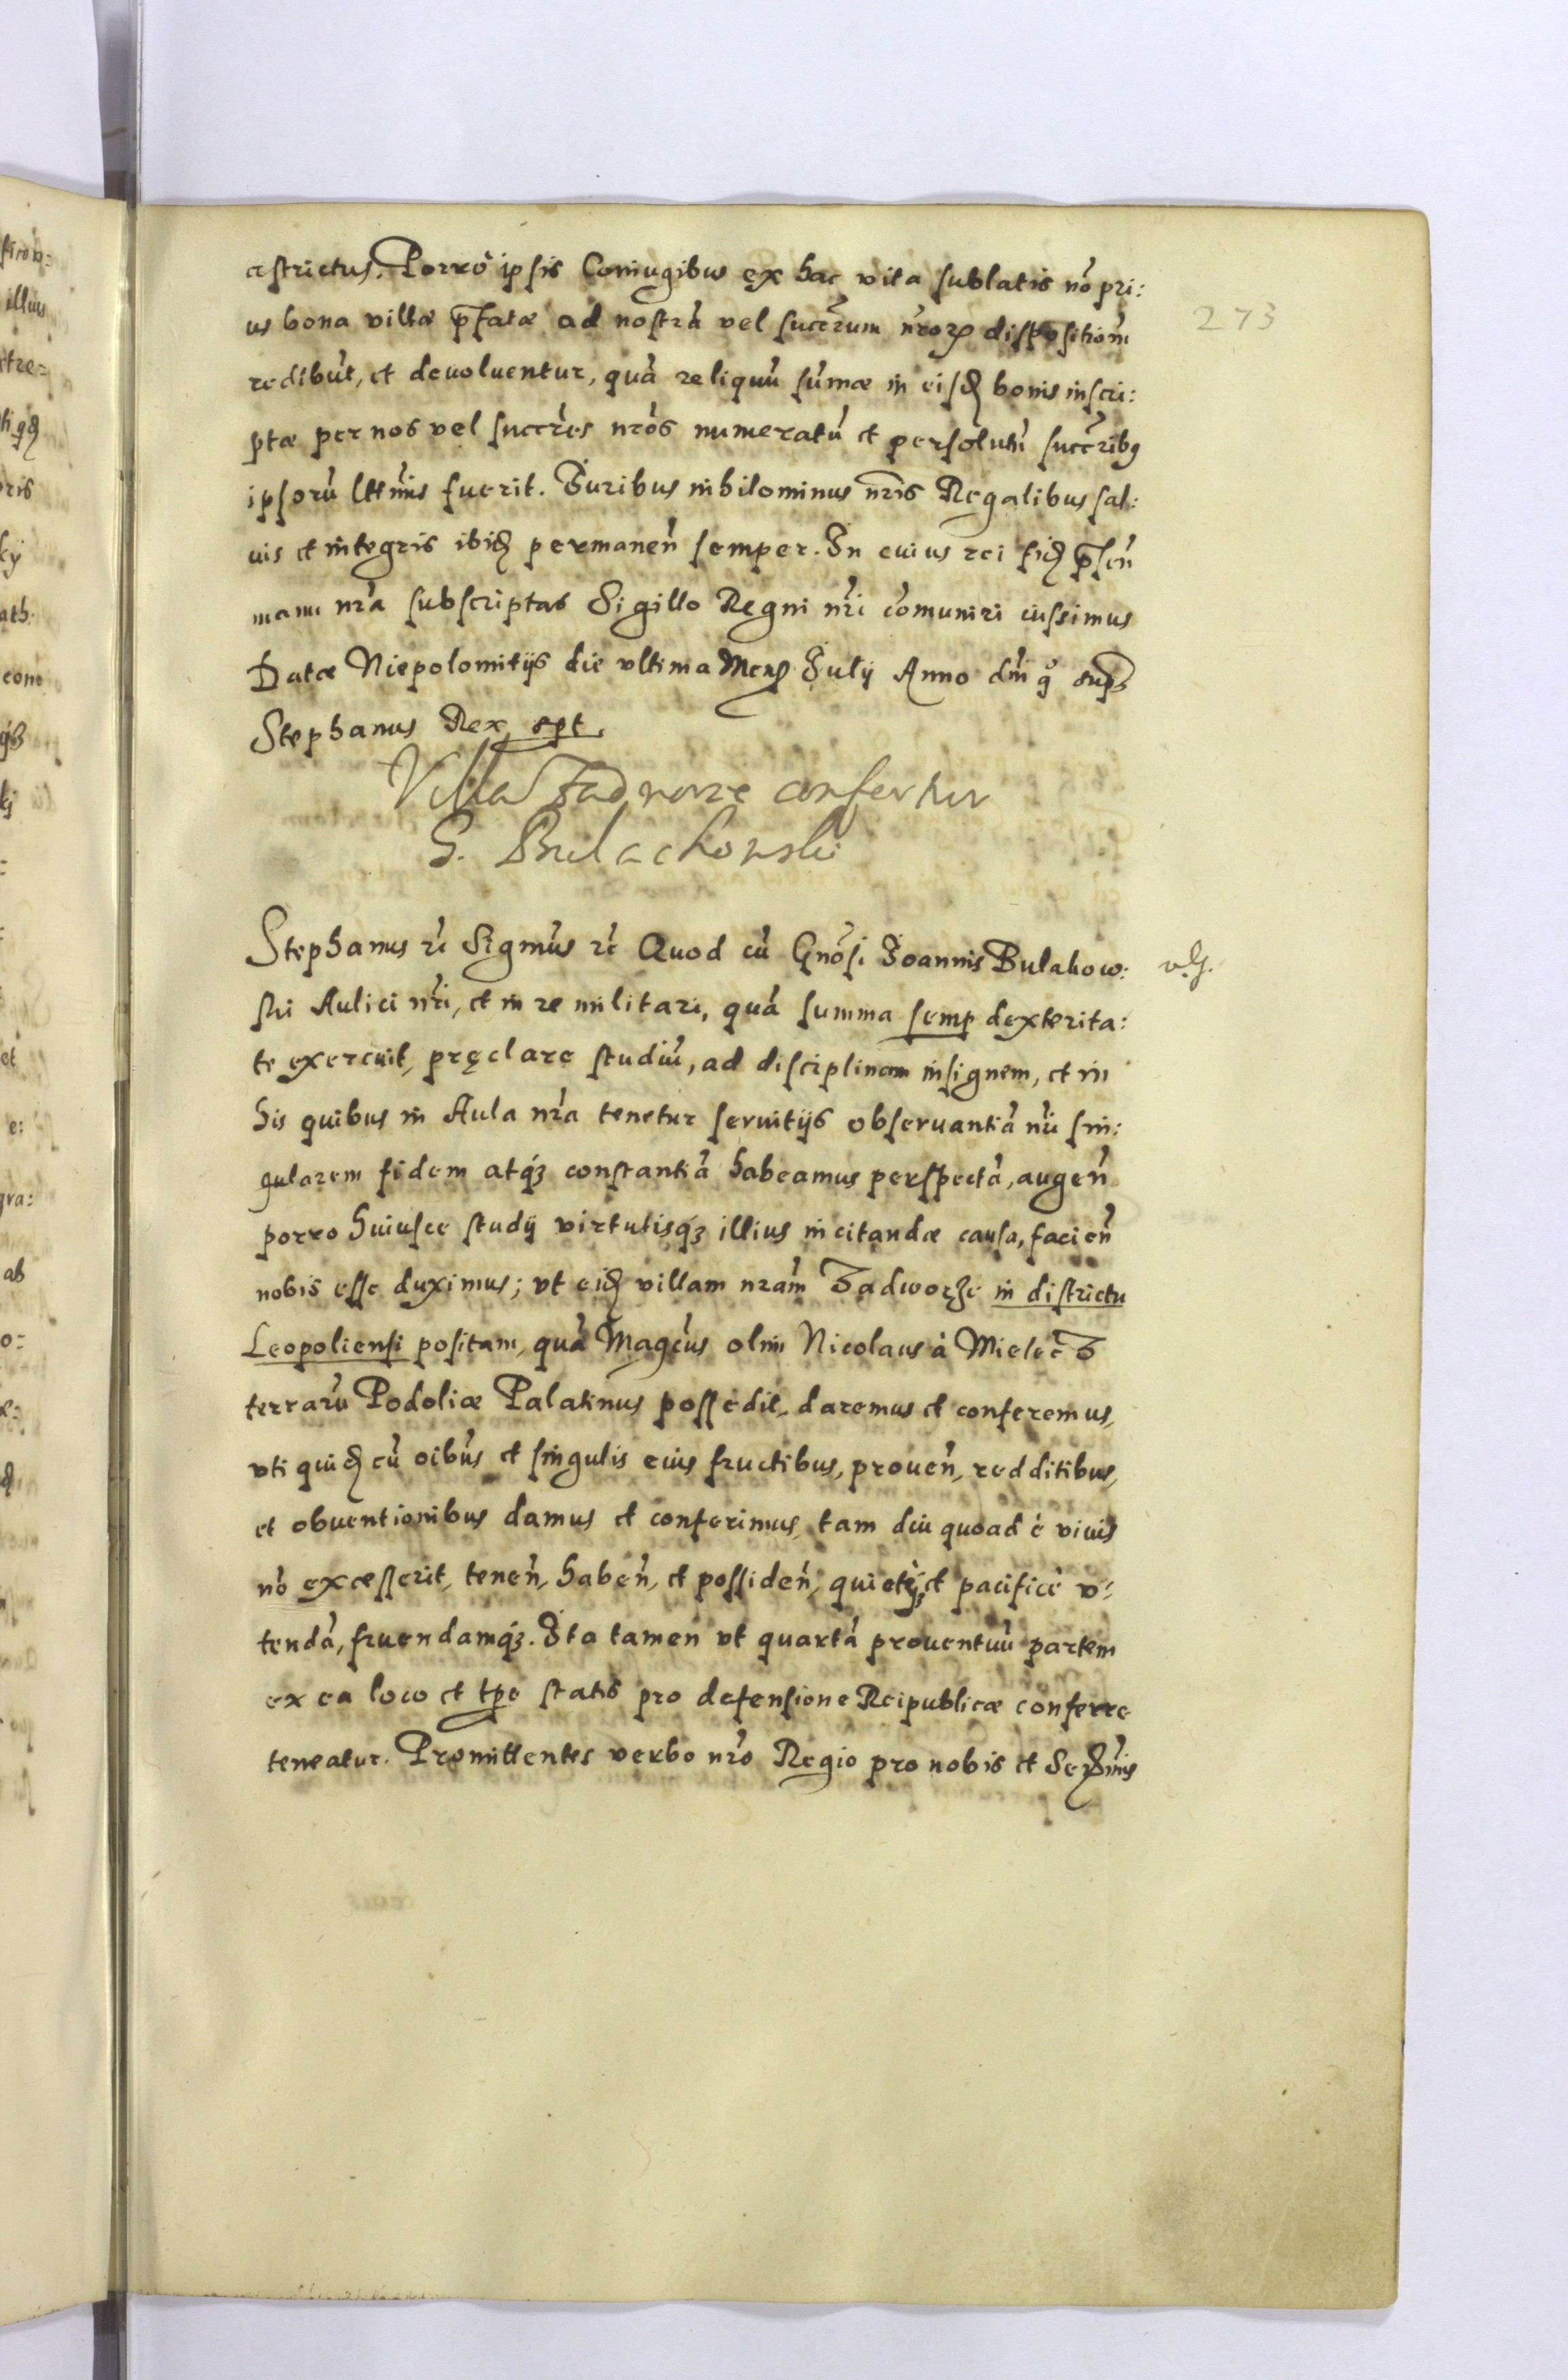 astrictus. Porrò ipsis Coniugibus ex hac vita sublatis nõ pri:
us bona villæ p̃fatæ ad nostrã vel succr̃um nr̃orꝫ dispositiom̃
redibũt, et devoluentur, quã reliquũ sũmæ in eisđ bonis inscri:
ptæ per nos vel succr̃es nr̃os numeratũ et persolutũ succr̃ibꝫ
ipsorũ lttĩmis fuerit. Iuribus nihilominus nr̃is Regalibus sal:
vis et integris ibiđ permaneñ semper. In cuius rei fiđ p̃señ
manu nr̃a subscriptas Sigillo Regni nr̃i cõmuniri iussimus
Datæ Niepolomitijs die vltima Menſ Iulij Anno dñi q̊ supꝫ
Stephanus Rex spt.
Villa Zadworze confertur
S. Bulachowski
Stephanus rc̃ Sigm̃us rc̃ Quod cũ Gnõsi Ioannis Bulahow:
ski Aulici nr̃i, et in re militari, quã summa semp dexterita:
te exercuit, pręclare studiũ, ad disciplinam insignem, et in
his quibus in Aula nr̃a tenetur servitijs observantiã nr̃i sin:
gularem fidem atqꝫ constantiã habeamus perspectã, augeñ
porro huiusce studij virtutisqꝫ illius incitandæ causa, facieñ
nobis esse duximus; vt eiđ villam nr̃am Zadworże in districtu
Leopoliensi positam, quã Magc̃us olim Nicolaus à Mielec Z
terrarũ Podoliæ Palatinus possedit, daremus et conferemus,
vti quiđ cũ oĩbus et singulis eius fructibus, proveñ, redditibus,
et obventionibus damus et conferimus, tam diu quoad è vivis
nõ excesserit, teneñ, habeñ, et possideñ, quietèqꝫ et pacificè v:
tendã, fruendamqꝫ. Ita tamen vt quartã proventuũ partem
ex ea loco et tp̃e statis pro defensione Reipublicæ conferre
teneatur. Promittentes verbo nr̃o Regio pro nobis et Serĩmis
273